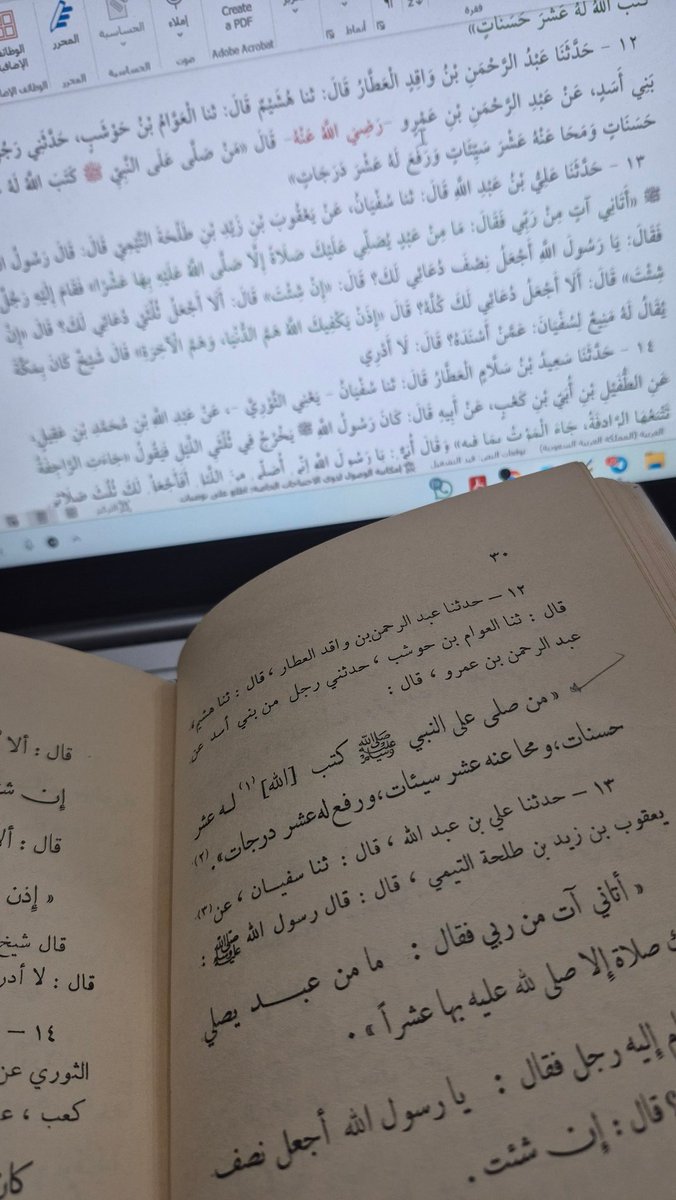 Create
a PDF
Adobe Acrobat
الحساسية
الحساسية
إملاء
صوت
المحرر
المحرر
أنماط
فقرة
كتب الله له عشر حسنات»
١٢ - حَدَّثَنَا عَبْدُ الرَّحْمَنِ بْنُ وَاقِدٍ الْعَطَّارُ قَالَ: ثنا هُشَيْمٌ قَالَ: ثنا الْعَوَّامُ بْنُ حَوْشَبٍ، حَدَّثَنِي رَجُلٌ
بَنِي أَسَدٍ، عَنْ عَبْدِ الرَّحْمَنِ بْنِ عَمْرٍو -رَضِيَ اللَّهُ عَنْهُ- قَالَ «مَنْ صَلَّى عَلَى النَّبِيِّ ﷺ كَتَبَ اللَّهُ لَهُ
حَسَنَاتٍ وَمَحَا عَنْهُ عَشْرَ سَيِّئَاتٍ وَرَفَعَ لَهُ عَشْرَ دَرَجَاتٍ»
١٣ - حَدَّثَنَا عَلِيُّ بْنُ عَبْدِ اللَّهِ قَالَ: ثنا سُفْيَانُ، عَنْ يَعْقُوبَ بْنِ زَيْدِ بْنِ طَلْحَةَ التَّيْمِيِّ قَالَ: قَالَ رَسُولُ
ﷺ «أَتَانِي آتٍ مِنْ رَبِّي فَقَالَ: مَا مِنْ عَبْدٍ يُصَلِّي عَلَيْكَ صَلَاةً إِلَّا صَلَّى اللَّهُ عَلَيْهِ بِهَا عَشْرًا» فَقَامَ إِلَيْهِ رَجُلٌ
فَقَالَ: يَا رَسُولَ اللَّهِ أَجْعَلُ نِصْفَ دُعَائِي لَكَ؟ قَالَ: «إِنْ شِئْتَ» قَالَ: أَلَا أَجْعَلُ ثُلُثَيْ دُعَائِي لَكَ؟ قَالَ «إِنْ
شِئْتَ» قَالَ: أَلَا أَجْعَلُ دُعَائِي لَكَ كُلَّهُ؟ قَالَ «إِذَنْ يَكْفِيَكَ اللَّهُ هَمَّ الدُّنْيَا، وَهَمَّ الْآخِرَةِ» قَالَ شَيْخٌ كَانَ بِمَكَّةَ
يُقَالُ لَهُ مَنِيعٌ لِسُفْيَانَ: عَمَّنْ أَسْنَدَهُ؟ قَالَ: لَا أَدْرِي
١٤ - حَدَّثَنَا سَعِيدُ بْنُ سَلَّامٍ الْعَطَّارُ قَالَ: ثنا سُفْيَانُ - يَعْنِي الثَّوْرِيَّ -، عَنْ عَبْدِ اللَّهِ بْنِ مُحَمَّدِ بْنِ عَقِيلٍ،
عَنِ الطُّفَيْلِ بْنِ أُبَيِّ بْنِ كَعْبٍ، عَنْ أَبِيهِ قَالَ: كَانَ رَسُولُ اللَّهِ ﷺ يَخْرُجُ فِي ثُلُثَيِ اللَّيْلِ فَيَقُولُ «جَاءَتِ الرَّاجِفَةُ
تَتْبَعُهَا الرَّادِفَةُ، جَاءَ الْمَوْتُ بِمَا فِيهِ» وَقَالَ أُبَيٌّ: يَا رَسُولَ اللَّهِ
العربية (المملكة العربية السعودية)
توقعات النص: قيد التشغيل
٣٠
١٢ — حدثنا عبد الرحمن بن واقد العطار ، قال : ثنا هشيم ،
قال : ثنا العوام بن حوشب ، حدثني رجل من بني أسد عن
عبد الرحمن بن عمرو ، قال :
« من صلى على النبي ﷺ كتب [الله] (١) له عشر
حسنات، ومحا عنه عشر سيئات، ورفع له عشر درجات». (٢)
١٣ — حدثنا علي بن عبد الله ، قال : ثنا سفيان ، عن (٣)
يعقوب بن زيد بن طلحة التيمي ، قال : قال رسول الله ﷺ :
« أتاني آت من ربي فقال : ما من عبد يصلي
صلاة إلا صلى لله عليه بها عشراً » .
إليه رجل فقال : يا رسول الله أجعل نصف
قال : إن شئت .
قال : ألا
إن
قال : ألا
« إذن
قال شيخ
قال : لا أدر
١٤ —
الثوري عن
كعب ،
كان